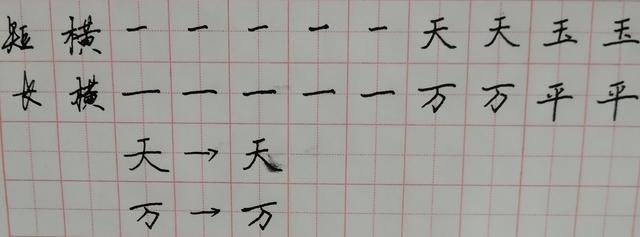 短 横 一 一 一 一 一 天 天 玉 玉
长 横 一 一 一 一 一 万 万 平 平
天 → 天
万 → 万